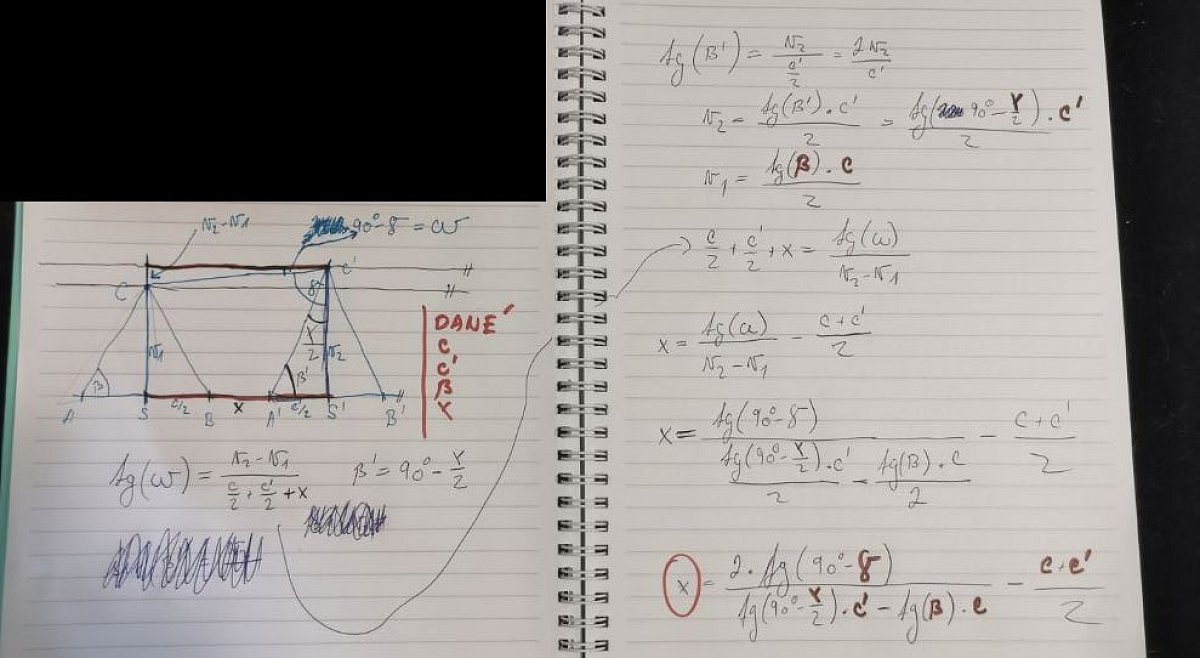 v₂-v₁
90°-δ = ω
C'
C
δ
γ/2
v₁
v₂
β
β'
A S c/2 B x A' c'/2 S' B'
DANÉ
c
c'
β
γ
tg(ω) = (v₂-v₁)/(c/2 + c'/2 + x)
β' = 90° - γ/2
tg(β') = v₂/(c'/2) = 2v₂/c'
v₂ = (tg(β')·c')/2 = (tg(90°-γ/2)·c')/2
v₁ = (tg(β)·c)/2
c/2 + c'/2 + x = tg(ω)/(v₂-v₁)
x = tg(ω)/(v₂-v₁) - (c+c')/2
x = tg(90°-δ)/((tg(90°-γ/2)·c')/2 - (tg(β)·c)/2) - (c+c')/2
x = (2·tg(90°-δ))/(tg(90°-γ/2)·c' - tg(β)·c) - (c+c')/2